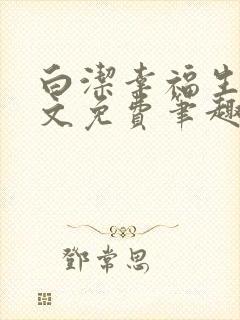 白潔幸福生
文免費筆趣
鄧常思